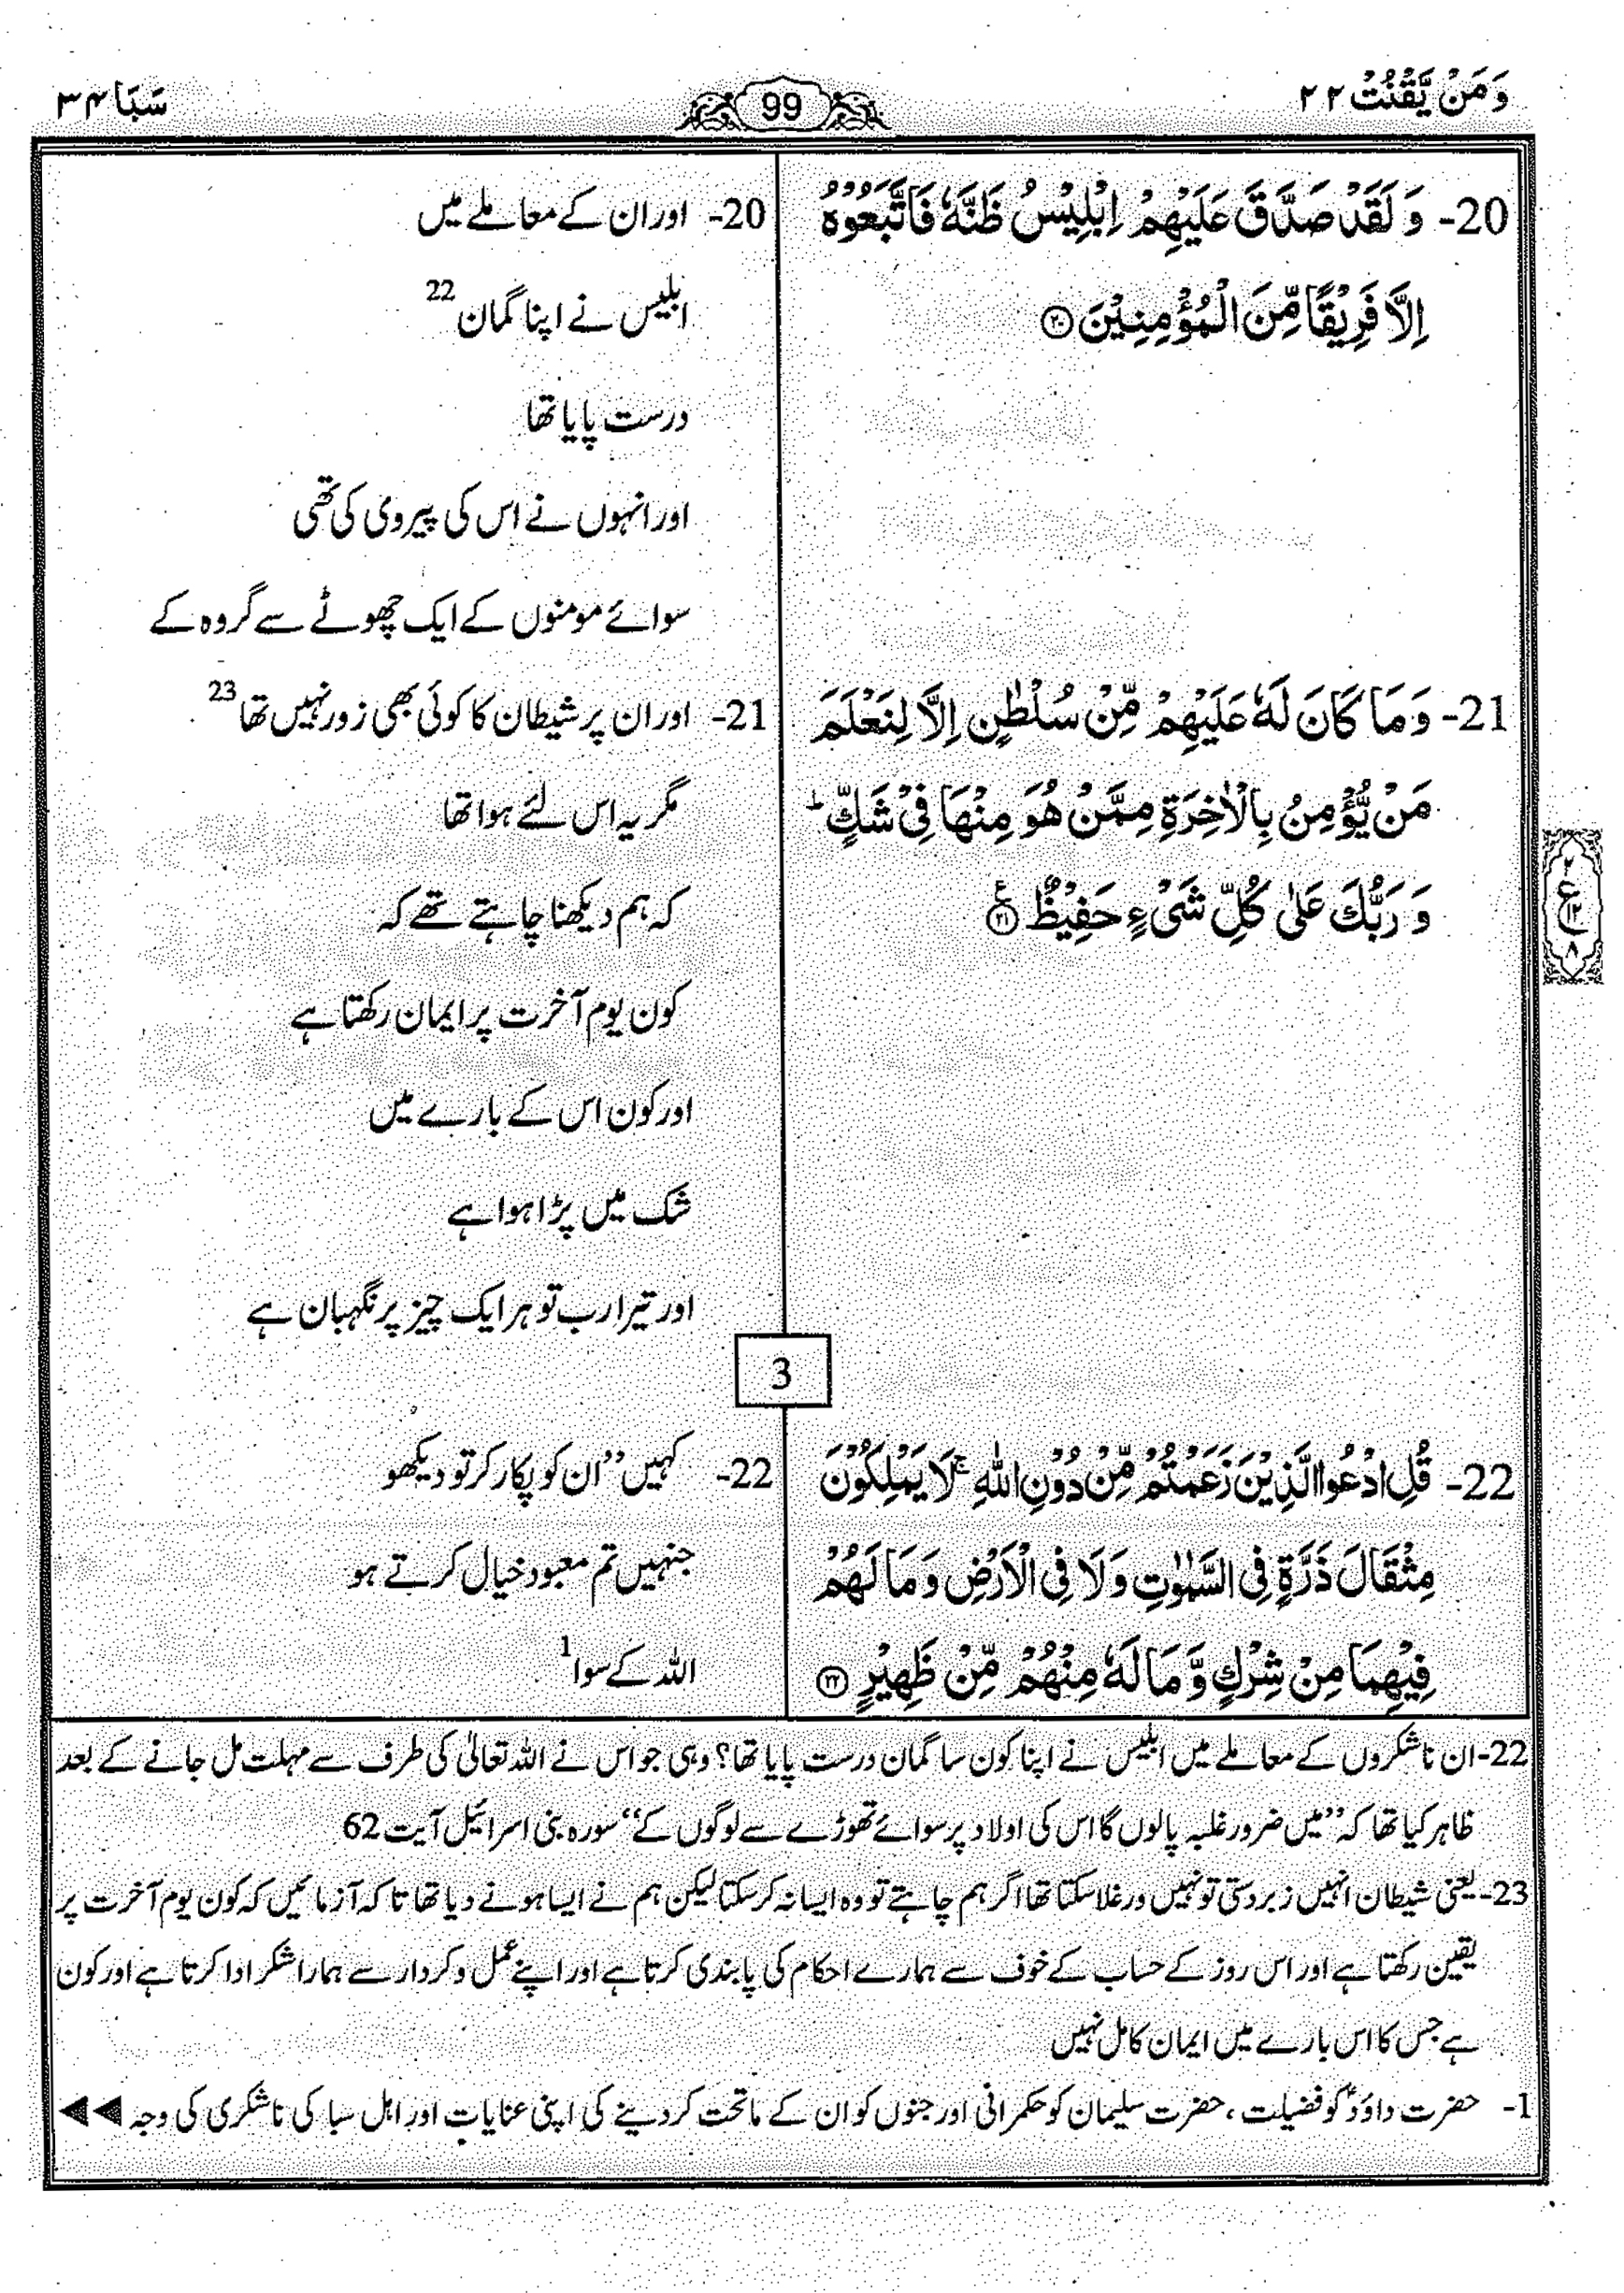 وَمَنْ يَّقْنُتْ ٢٢
99
سَبَا ٣٤
20- وَ لَقَدْ صَدَّقَ عَلَيْهِمْ اِبْلِيْسُ ظَنَّهٗ فَاتَّبَعُوْهُ
اِلَّا فَرِيْقًا مِّنَ الْمُؤْمِنِيْنَ ﴿٢٠﴾
20- اور ان کے معاملے میں
ابلیس نے اپنا گمان 22
درست پایا تھا
اور انہوں نے اس کی پیروی کی تھی
سوائے مومنوں کے ایک چھوٹے سے گروہ کے
21- وَمَا كَانَ لَهٗ عَلَيْهِمْ مِّنْ سُلْطٰنٍ اِلَّا لِنَعْلَمَ
مَنْ يُّؤْمِنُ بِالْاٰخِرَةِ مِمَّنْ هُوَ مِنْهَا فِيْ شَكٍّ ؕ
وَ رَبُّكَ عَلٰى كُلِّ شَيْءٍ حَفِيْظٌ ﴿٢١﴾ ع
٢
ع
١٢
٨
21- اور ان پر شیطان کا کوئی بھی زور نہیں تھا 23
مگر یہ اس لئے ہوا تھا
کہ ہم دیکھنا چاہتے تھے کہ
کون یوم آخرت پر ایمان رکھتا ہے
اور کون اس کے بارے میں
شک میں پڑا ہوا ہے
اور تیرا رب تو ہر ایک چیز پر نگہبان ہے
3
22- قُلِ ادْعُوا الَّذِيْنَ زَعَمْتُمْ مِّنْ دُوْنِ اللّٰهِ ۚ لَا يَمْلِكُوْنَ
مِثْقَالَ ذَرَّةٍ فِي السَّمٰوٰتِ وَلَا فِي الْاَرْضِ وَمَا لَهُمْ
فِيْهِمَا مِنْ شِرْكٍ وَّمَا لَهٗ مِنْهُمْ مِّنْ ظَهِيْرٍ ﴿٢٢﴾
22- کہیں ”ان کو پکار کر تو دیکھو
جنہیں تم معبود خیال کرتے ہو
اللہ کے سوا 1
22- ان ناشکروں کے معاملے میں ابلیس نے اپنا کون سا گمان درست پایا تھا؟ وہی جو اس نے اللہ تعالیٰ کی طرف سے مہلت مل جانے کے بعد
ظاہر کیا تھا کہ ”میں ضرور غلبہ پالوں گا اس کی اولاد پر سوائے تھوڑے سے لوگوں کے“ سورہ بنی اسرائیل آیت 62
23- یعنی شیطان انہیں زبردستی تو نہیں ورغلا سکتا تھا اگر ہم چاہتے تو وہ ایسا نہ کر سکتا لیکن ہم نے ایسا ہونے دیا تھا تاکہ آزمائیں کہ کون یوم آخرت پر
یقین رکھتا ہے اور اس روز کے حساب کے خوف سے ہمارے احکام کی پابندی کرتا ہے اور اپنے عمل و کردار سے ہمارا شکر ادا کرتا ہے اور کون
ہے جس کا اس بارے میں ایمان کامل نہیں
1- حضرت داؤدؑ کو فضیلت، حضرت سلیمان کو حکمرانی اور جنوں کو ان کے ماتحت کر دینے کی اپنی عنایات اور اہل سبا کی ناشکری کی وجہ ◄◄